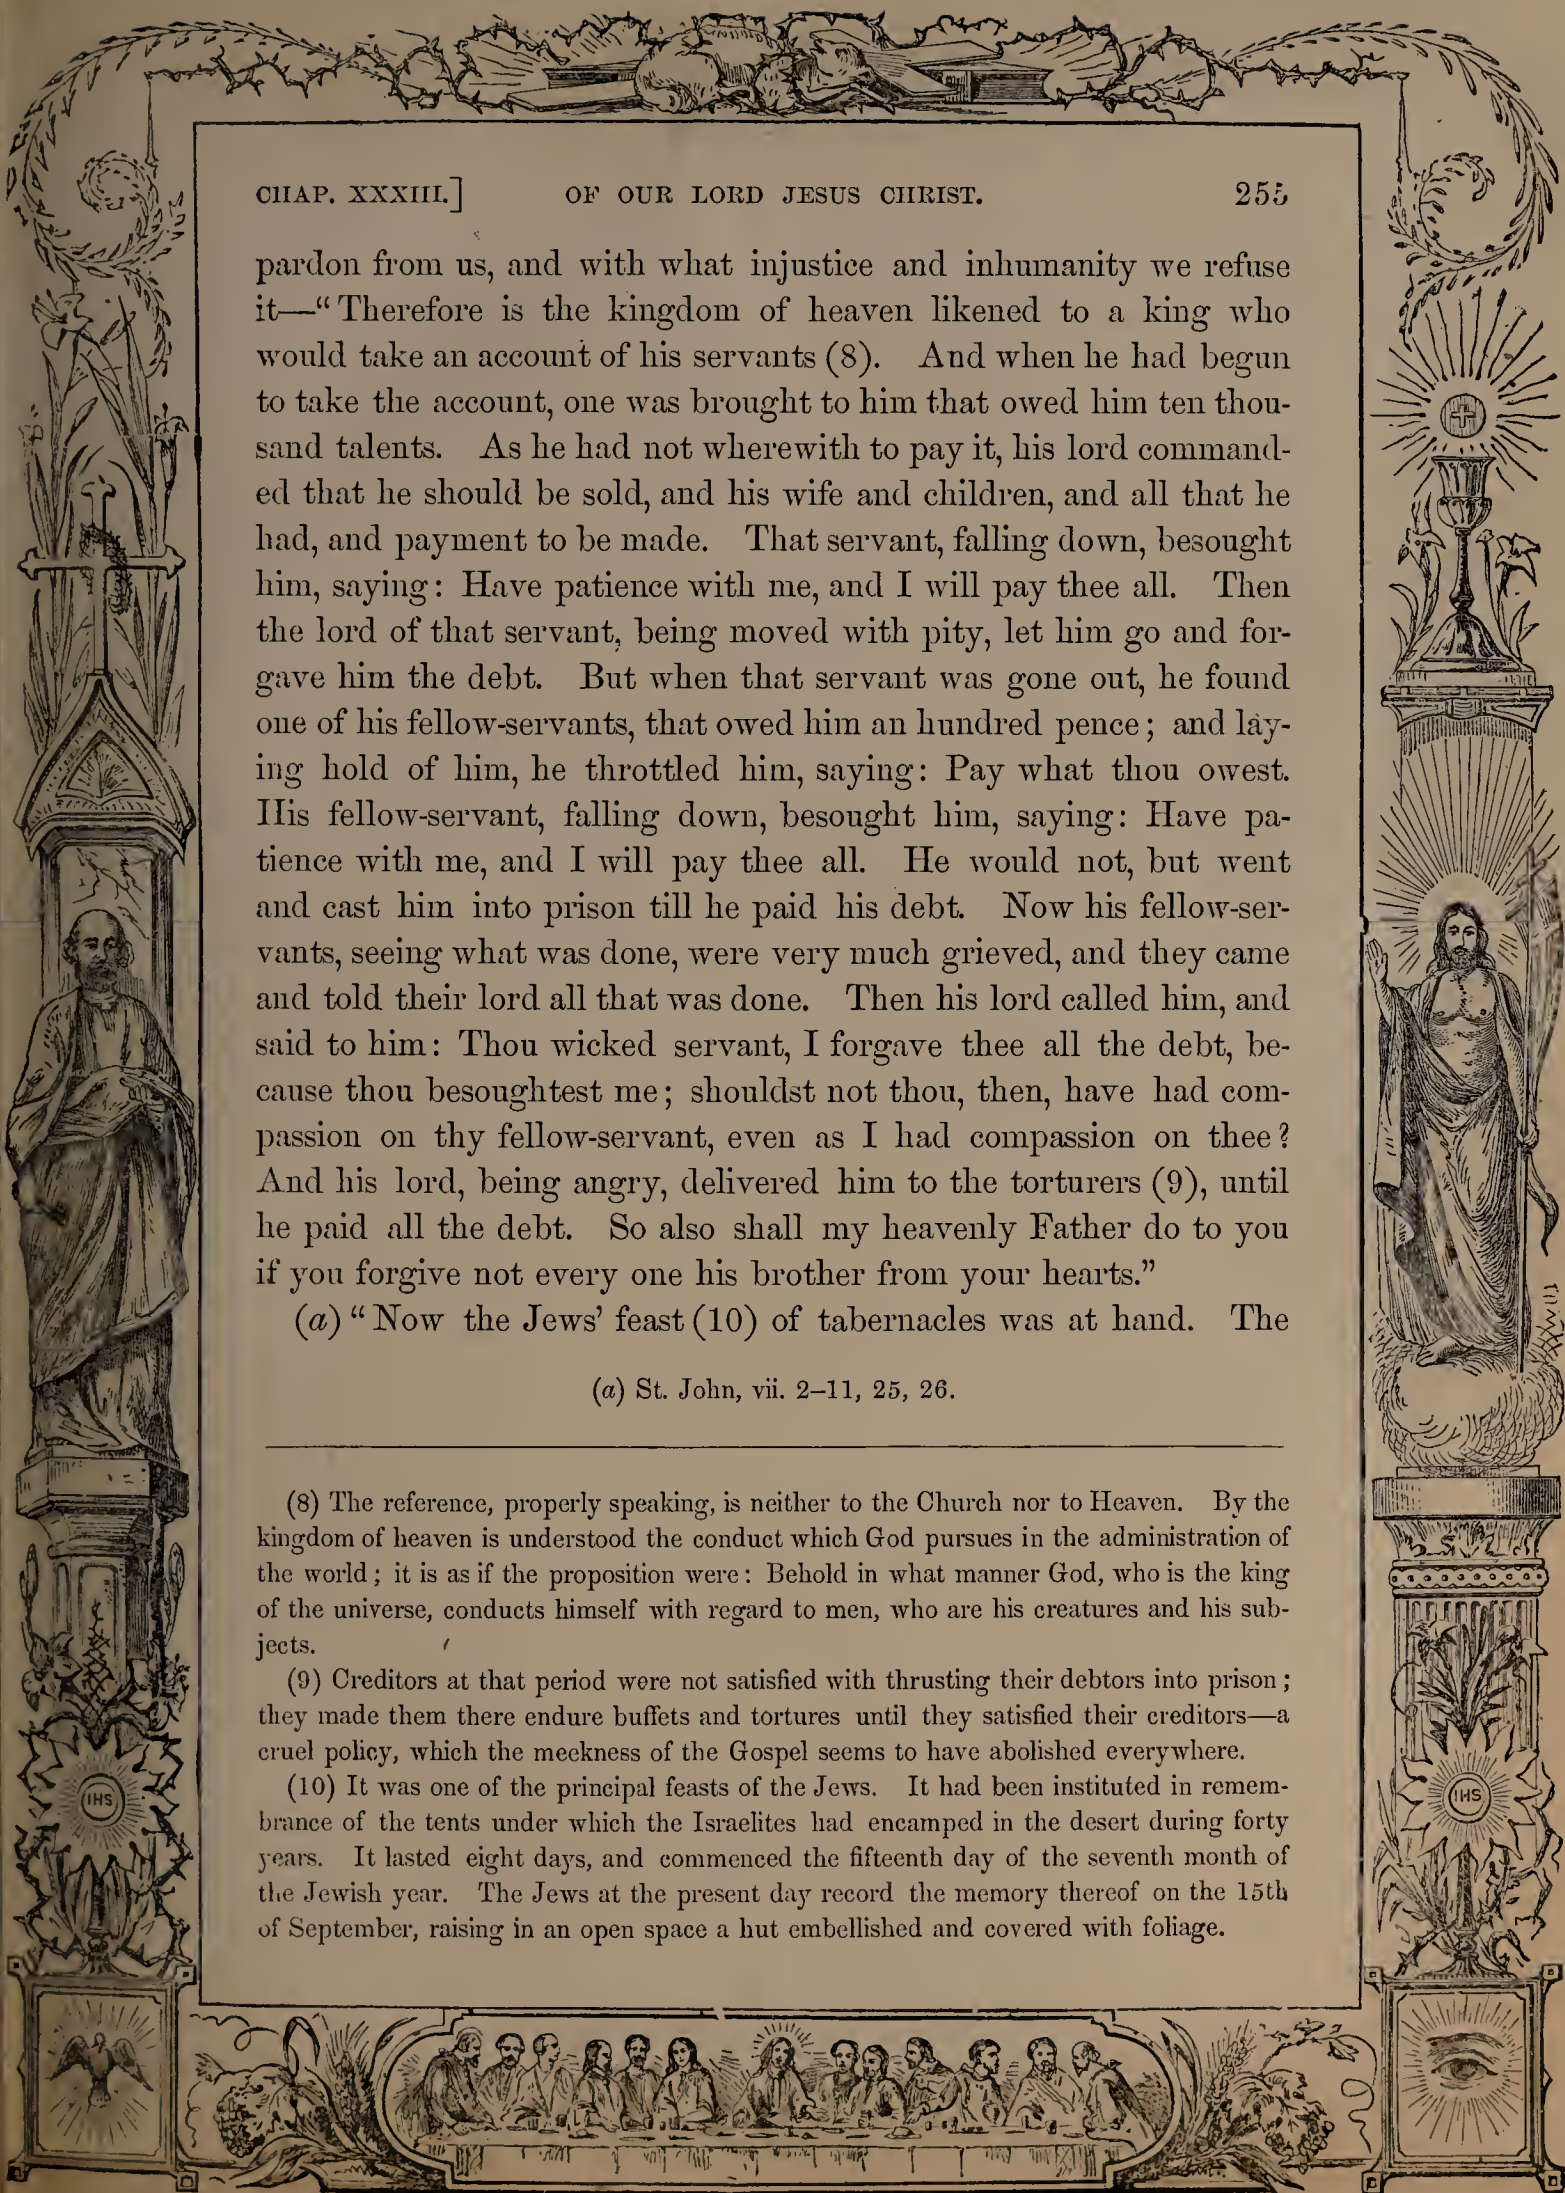 CHAP. XXXIII.] OF OUR LORD JESUS CHRIST. 255
pardon from us, and with what injustice and inhumanity we refuse
it—“Therefore is the kingdom of heaven likened to a king who
would take an account of his servants (8). And when he had begun
to take the account, one was brought to him that owed him ten thou-
sand talents. As he had not wherewith to pay it, his lord command-
ed that he should be sold, and his wife and children, and all that he
had, and payment to be made. That servant, falling down, besought
him, saying: Have patience with me, and I will pay thee all. Then
the lord of that servant, being moved with pity, let him go and for-
gave him the debt. But when that servant was gone out, he found
one of his fellow-servants, that owed him an hundred pence; and lay-
ing hold of him, he throttled him, saying: Pay what thou owest.
His fellow-servant, falling down, besought him, saying: Have pa-
tience with me, and I will pay thee all. He would not, but went
and cast him into prison till he paid his debt. Now his fellow-ser-
vants, seeing what was done, were very much grieved, and they came
and told their lord all that was done. Then his lord called him, and
said to him: Thou wicked servant, I forgave thee all the debt, be-
cause thou besoughtest me; shouldst not thou, then, have had com-
passion on thy fellow-servant, even as I had compassion on thee?
And his lord, being angry, delivered him to the torturers (9), until
he paid all the debt. So also shall my heavenly Father do to you
if you forgive not every one his brother from your hearts.”
(a) “Now the Jews’ feast (10) of tabernacles was at hand. The
(a) St. John, vii. 2–11, 25, 26.
(8) The reference, properly speaking, is neither to the Church nor to Heaven. By the
kingdom of heaven is understood the conduct which God pursues in the administration of
the world; it is as if the proposition were: Behold in what manner God, who is the king
of the universe, conducts himself with regard to men, who are his creatures and his sub-
jects.
(9) Creditors at that period were not satisfied with thrusting their debtors into prison;
they made them there endure buffets and tortures until they satisfied their creditors—a
cruel policy, which the meekness of the Gospel seems to have abolished everywhere.
(10) It was one of the principal feasts of the Jews. It had been instituted in remem-
brance of the tents under which the Israelites had encamped in the desert during forty
years. It lasted eight days, and commenced the fifteenth day of the seventh month of
the Jewish year. The Jews at the present day record the memory thereof on the 15th
of September, raising in an open space a hut embellished and covered with foliage.
IHS
IHS